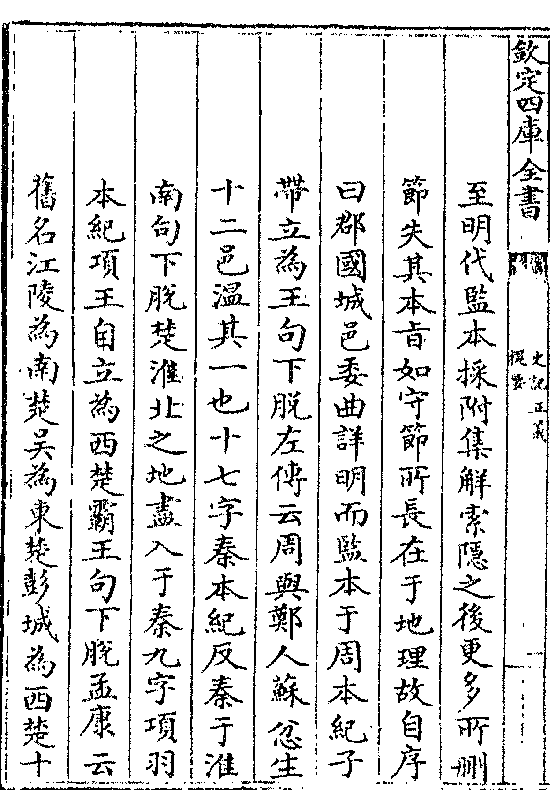 欽定四庫全書
史記正義
提要
至明代監本採附集解索隱之後更多所刪
節失其本旨如守節所長在于地理故自序
曰郡國城邑委曲詳明而監本于周本紀子
帶立為王句下脫左傳云周與鄭人蘇忿生
十二邑溫其一也十七字秦本紀反秦于淮
南句下脫楚淮北之地盡入于秦九字項羽
本紀項王自立為西楚霸王句下脫孟康云
舊名江陵為南楚吳為東楚彭城為西楚十